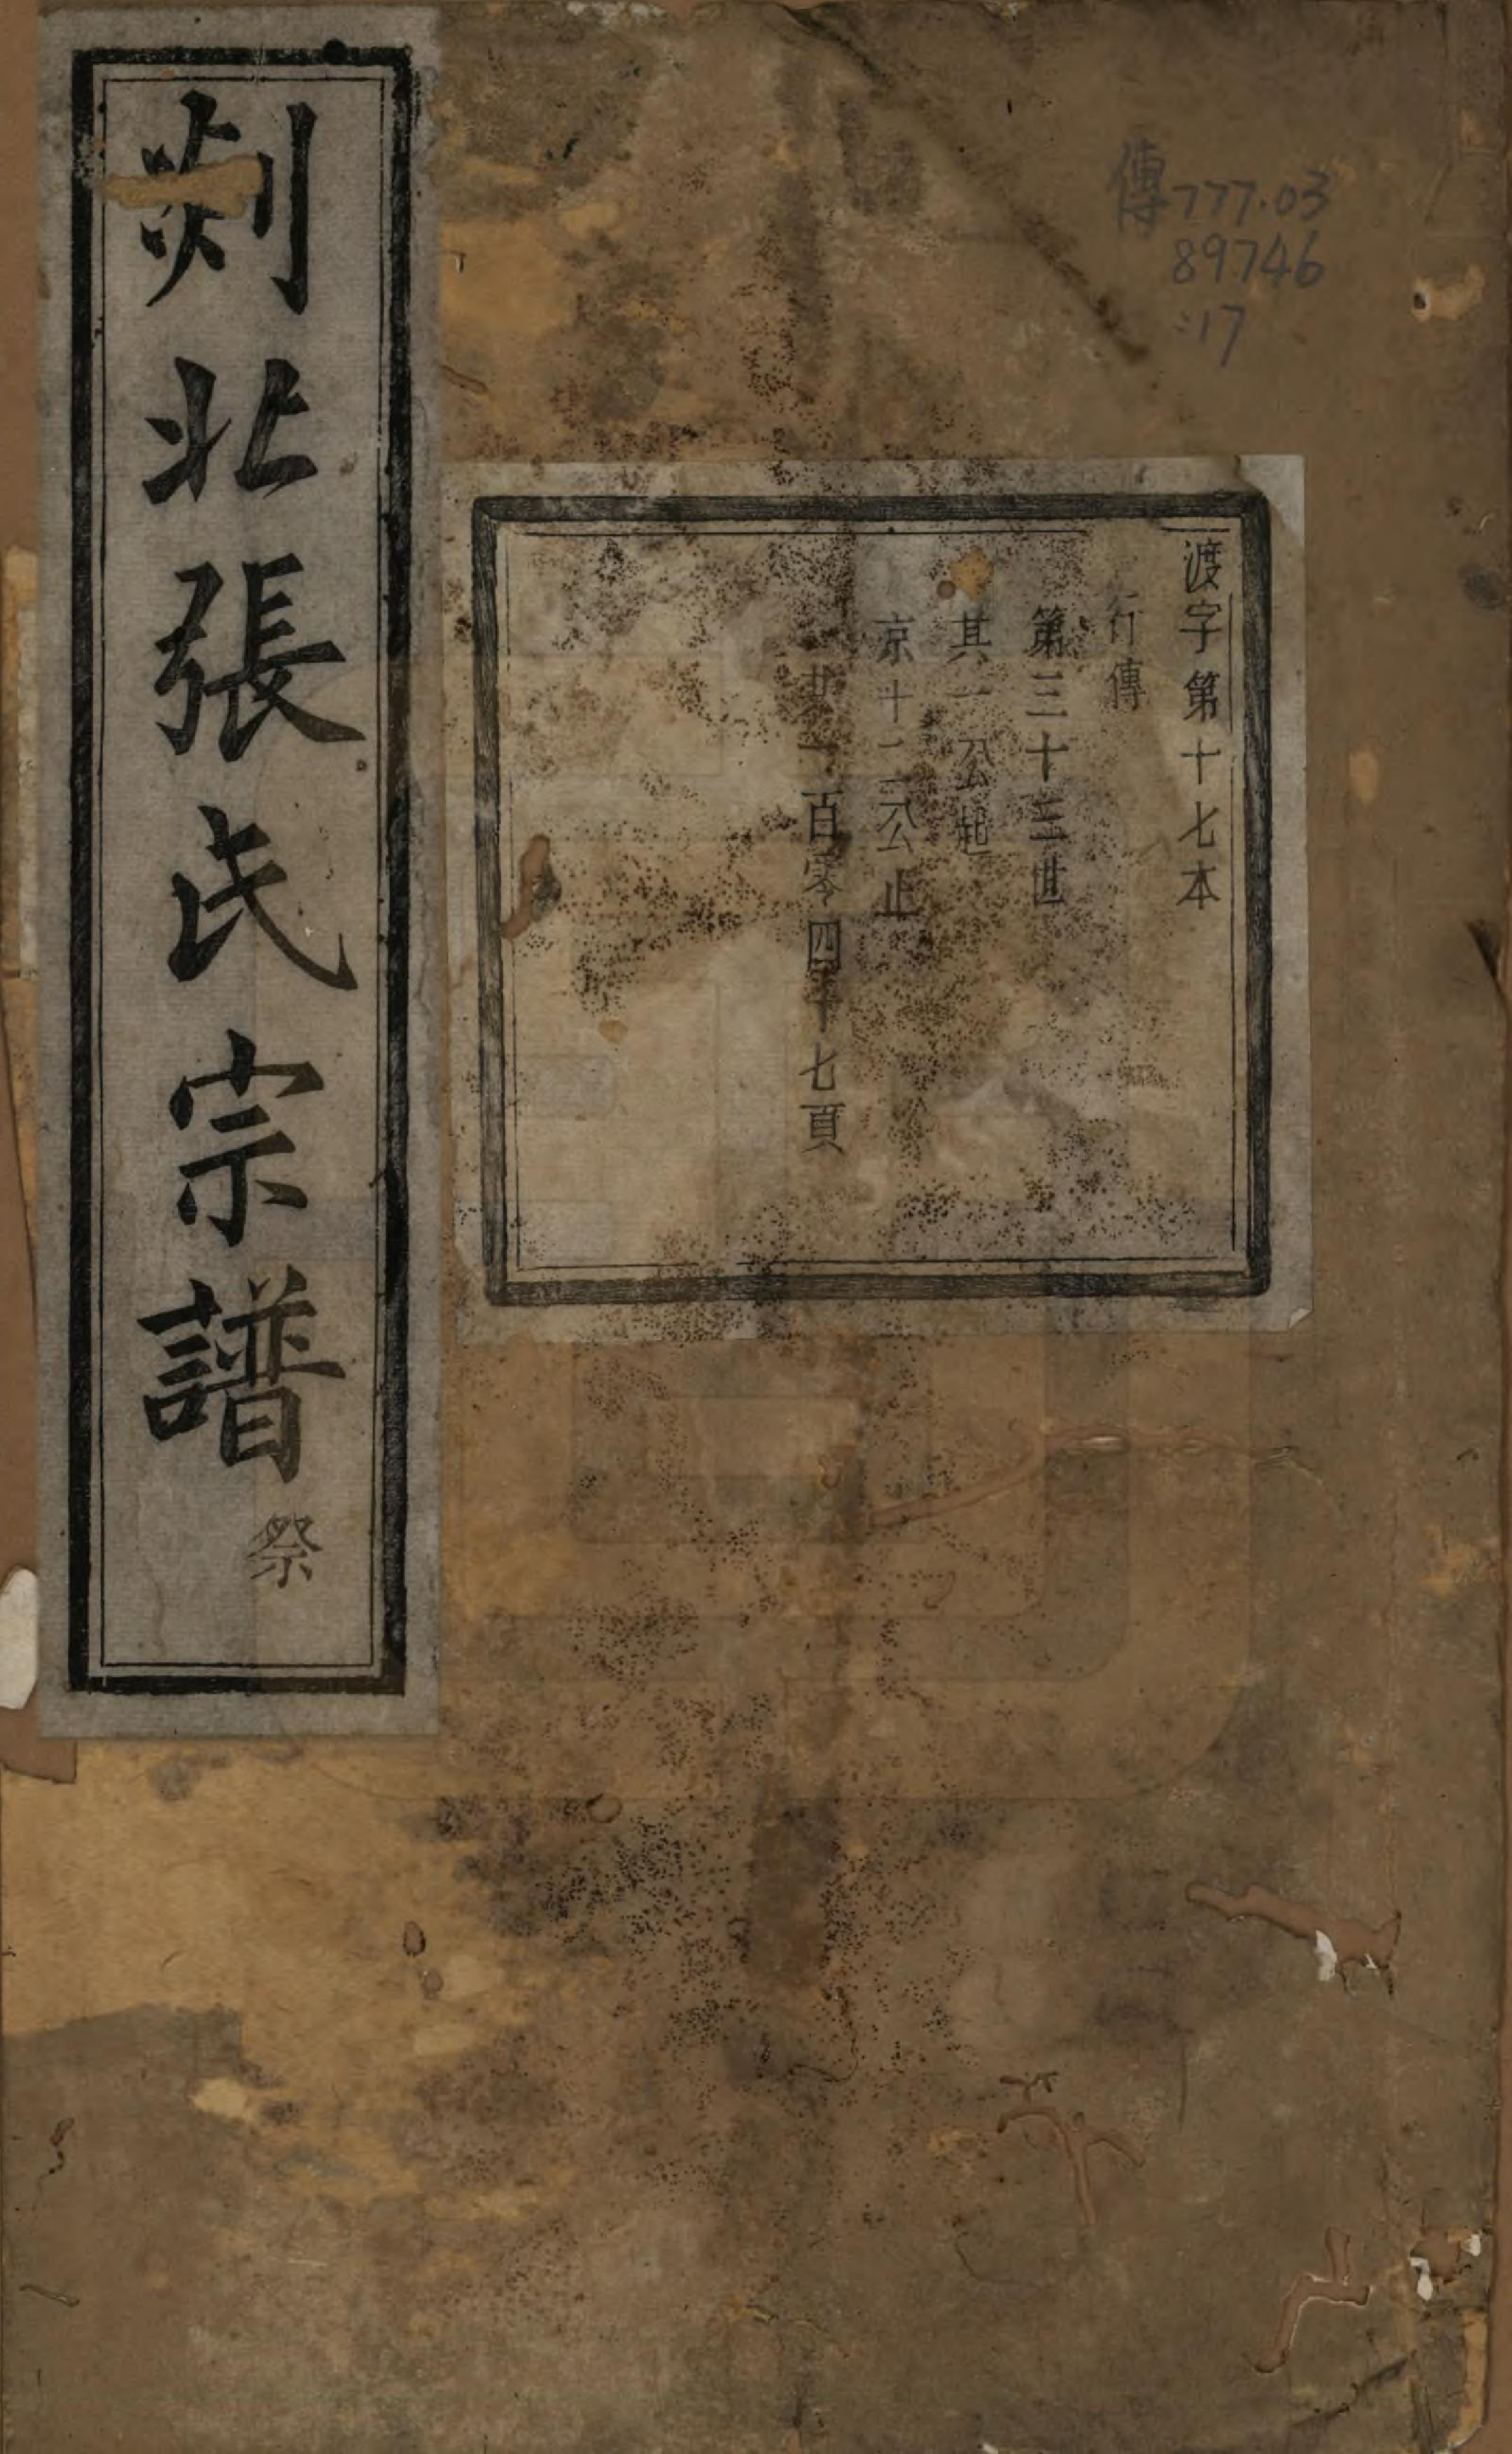 傳777.03
89746
:17
渡字第十七本
行傳
第三十三世
其一公起
京十二公止
一百零四十七頁
剡北張氏宗譜
祭